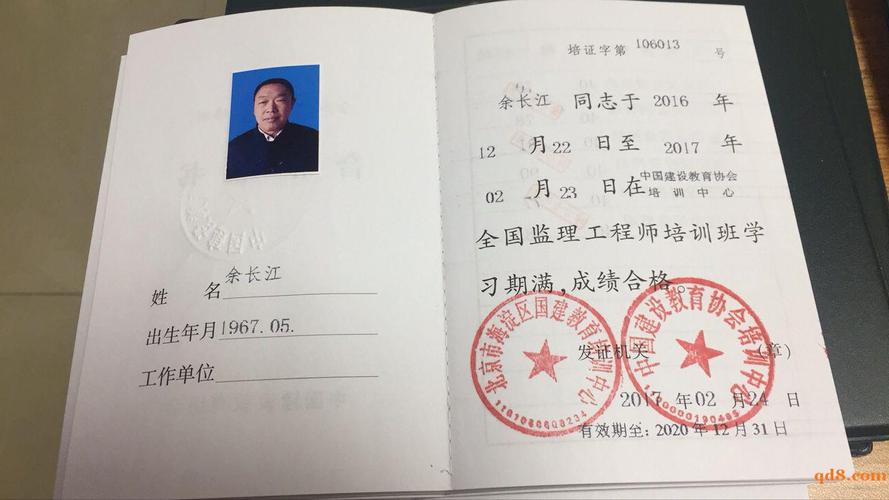 姓 名 余长江
出生年月 1967.05.
工作单位
培证字第 106013 号
余长江 同志于 2016 年
12 月 22 日至 2017 年
02 月 23 日在 中国建设教育协会
培训中心
全国监理工程师培训班学
习期满,成绩合格。
发证机关 (章)
2017 年 02 月 24 日
有效期至: 2020年12月31日
北京市海淀区国建教育培训中心
中国建设教育协会培训中心
qd8.com